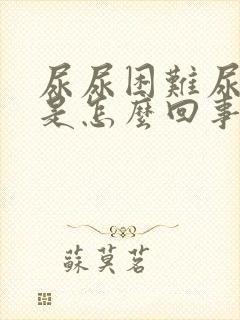 尿尿困難尿
是怎麼回事
蘇莫茗